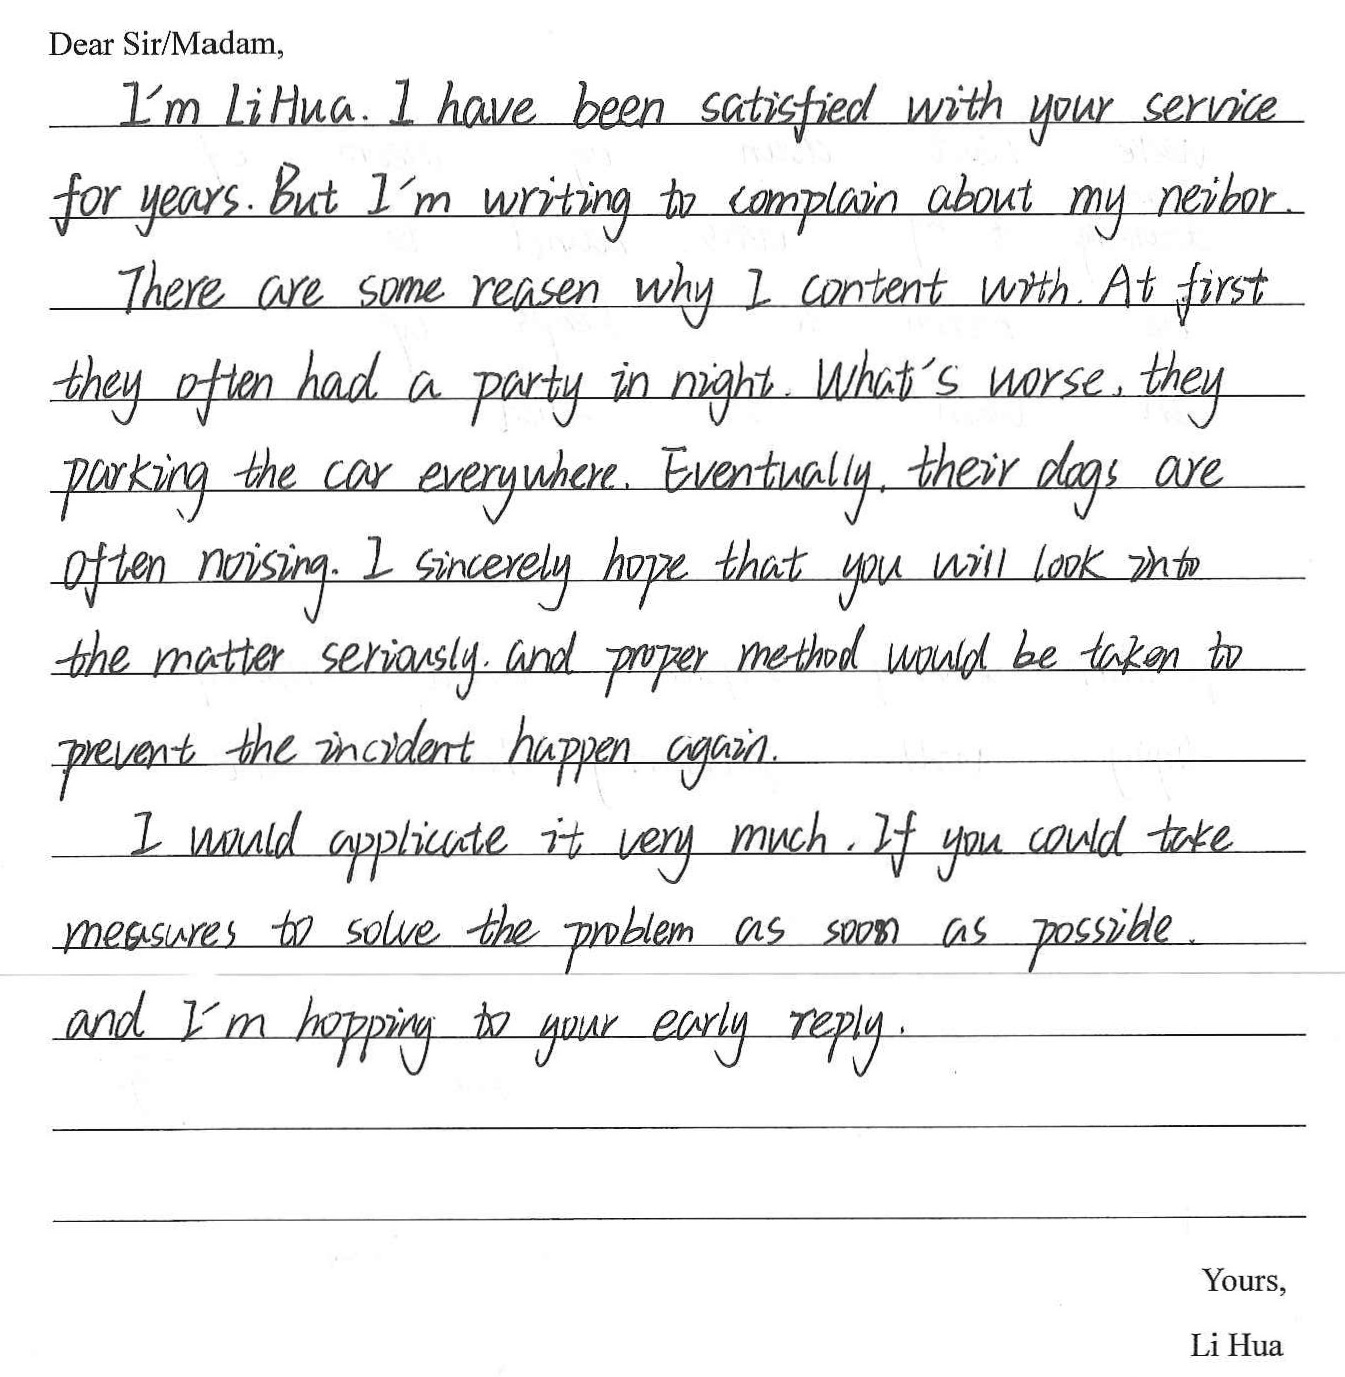 Dear Sir/Madam,
I'm LiHua. I have been satisfied with your service
for years. But I'm writing to complain about my neibor.
There are some reasen why I content with. At first
they often had a party in night. What's worse, they
parking the car everywhere. Eventually, their dogs are
often noising. I sincerely hope that you will look into
the matter seriously. and proper method would be taken to
prevent the incident happen again.
I would applicate it very much. If you could take
measures to solve the problem as soon as possible.
and I'm hopping to your early reply.
Yours,
Li Hua